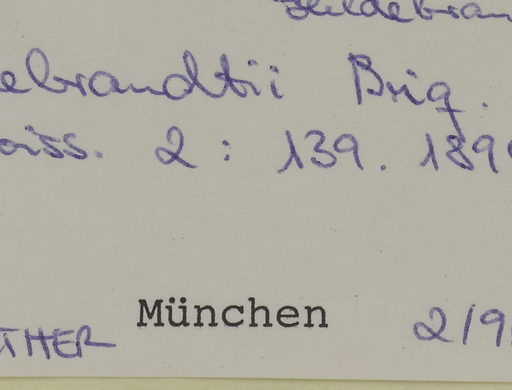 Hildebran
ebrandtii Briq.
oiss. 2 : 139. 189
THER München 2/9